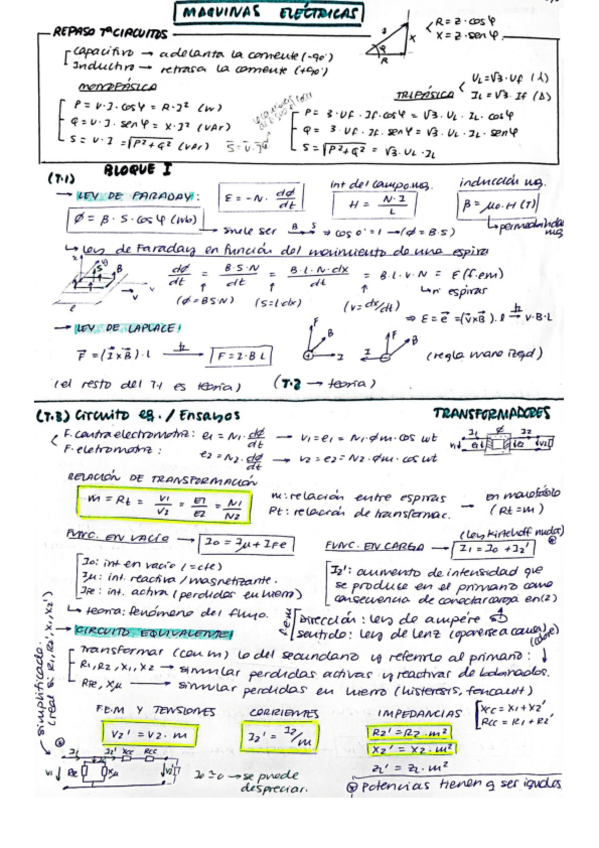 MAQUINAS ELÉCTRICAS
REPASO Tª CIRCUITOS
R = Z · cosφ
X = Z · senφ
Capacitivo → adelanta la corriente (-90º)
Inductivo → retrasa la corriente (+90º)
MONOFÁSICA
P = V · I · cosφ = R · I² (W)
Q = V · I · senφ = X · I² (VAr)
S = V · I = √P²+Q² (VAr)
TRIFÁSICA
UL = √3 · Uf (λ)
IL = √3 · If (Δ)
P = 3 · Uf · If · cosφ = √3 · UL · IL · cosφ
Q = 3 · Uf · If · senφ = √3 · UL · IL · senφ
S = √P²+Q² = √3 · UL · IL
(T.1) BLOQUE I
→ LEY DE FARADAY: E = -N · dφ/dt
int del campo mag. H = N · I / L
inducción mg. β = μ0 · H (T)
φ = β · S · cosφ (Wb) → suele ser B S ⇒ cos 0º = 1 → (φ = B · S)
↳ Ley de Faraday en función del movimiento de una espira
dφ/dt = B · S · N / dt = B · l · N · dx / dt = B · l · v · N = E (f.em)
(φ = BSN) (S = l · dx) (v = dx/dt) ↳ nº espiras
⇒ E = e = (v x B) · l → v · B · L
→ LEY DE LAPLACE:
F = (I x B) · L → F = I · B · L
(regla mano izqd)
(el resto del T.1 es teoría) (T.2 → teoría)
(T.3) Circuito eq. / Ensayos TRANSFORMADORES
F. contraelectromotriz: e1 = N1 · dφ/dt → v1 = e1 = N1 · φm · cos wt
F. eletromotriz: e2 = N2 · dφ/dt → v2 = e2 = N2 · φm · cos wt
RELACIÓN DE TRANSFORMACIÓN
m = Rt = V1/V2 = E1/E2 = N1/N2
m: relación entre espiras
Rt: relación de transformac.
en monofásico (Rt = m)
FUNC. EN VACÍO → I0 = Iμ + IFe
FUNC. EN CARGA → I1 = I0 + I2'
(Ley Kirchoff nudos)
I0: int en vacío (=cte)
Iμ: int. reactiva / magnetizante.
Ife: int. activa (perdidas en hierro)
↳ teoría: fenómeno del flujo.
I2': aumento de intensidad que
se produce en el primario como
consecuencia de conectar carga en (2)
Dirección: ley de ampére
sentido: ley de lenz (oponerse a causa)
→ CIRCUITO EQUIVALENTE:
Transformar (con m) lo del secundario y referirlo al primario:
R1, R2, X1, X2 → simular perdidas activas y reactivas de bobinados.
Rfe, Xμ → simular perdidas en hierro (histeresis, foucault)
simplificado.
(real si: R1, R2', X1, X2')
F.E.M Y TENSIONES CORRIENTES IMPEDANCIAS
V2' = V2 · m
I2' = I2/m
R2' = R2 · m²
X2' = X2 · m²
Z2' = Z2 · m²
Xcc = X1 + X2'
Rcc = R1 + R2'
I0 ≃ 0 → se puede
despreciar.
Potencias tienen q ser iguales